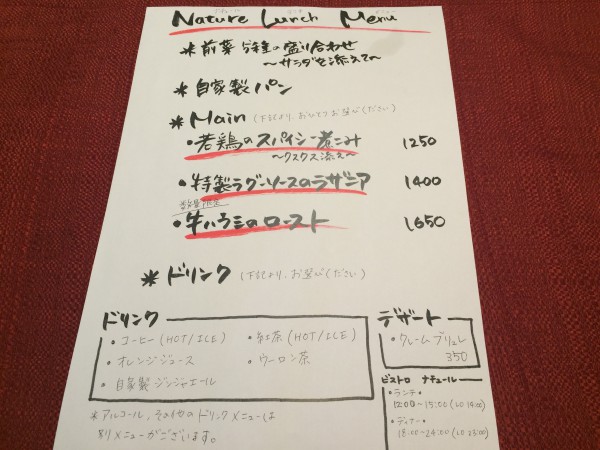 Nature Lunch Menu
*前菜5種の盛り合わせ
〜サラダを添えて〜
*自家製パン
*Main (下記より、おひとつお選びください)
・若鶏のスパイシー煮こみ 1250
〜クスクス添え〜
・特製ラグーソースのラザニア 1400
数量限定
・牛ハラミのロースト 1650
*ドリンク (下記より、お選びください)
ドリンク
・コーヒー(HOT/ICE) ・紅茶(HOT/ICE)
・オレンジジュース ・ウーロン茶
・自家製ジンジャエール
*アルコール、その他のドリンクメニューは
別メニューがございます。
デザート
・クレームブリュレ
350
ビストロ ナチュール
・ランチ・
12:00〜15:00(LO 14:00)
・ディナー・
18:00〜24:00(LO 23:00)